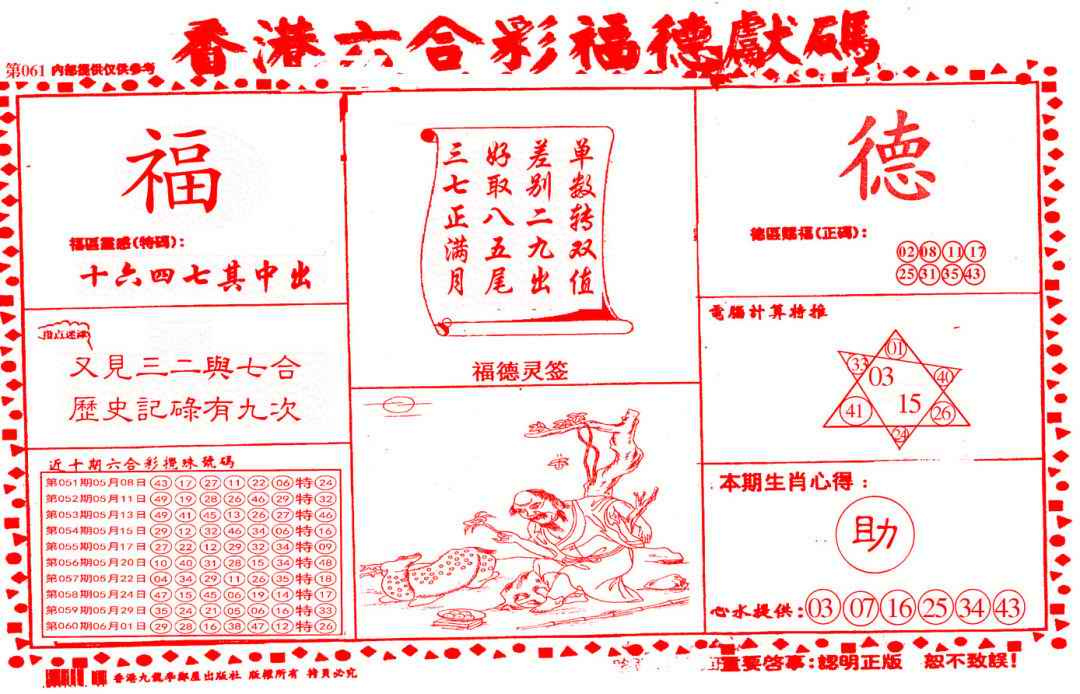 香港六合彩福德獻碼
第061 内部提供仅供参考
福
福區靈感(特碼):
十六四七其中出
指点迷津
又見三二與七合
歷史記碌有九次
近十期六合彩攪珠號碼
第051期05月08日 43 17 27 11 22 06 特 24
第052期05月11日 49 19 28 26 46 29 特 32
第053期05月13日 49 41 45 13 26 27 特 46
第054期05月15日 29 12 32 46 34 06 特 16
第055期05月17日 27 22 12 29 32 34 特 09
第056期05月20日 10 40 31 28 15 34 特 48
第057期05月22日 04 34 29 11 26 35 特 18
第058期05月24日 47 15 45 06 19 14 特 17
第059期05月29日 35 24 21 05 06 16 特 33
第060期06月01日 29 28 16 38 47 12 特 26
单数转双值
差别二九出
好取八五尾
三七正满月
福德灵签
德
德區賜福(正碼):
02 08 11 17
25 31 35 43
電腦計算特推
01
33
03
40
41
15
26
24
本期生肖心得:
助
心水提供:03 07 16 25 34 43
香港九龍李鄭屋出版社 版權所有 特員必究
重要啓事:認明正版 恕不致誤!